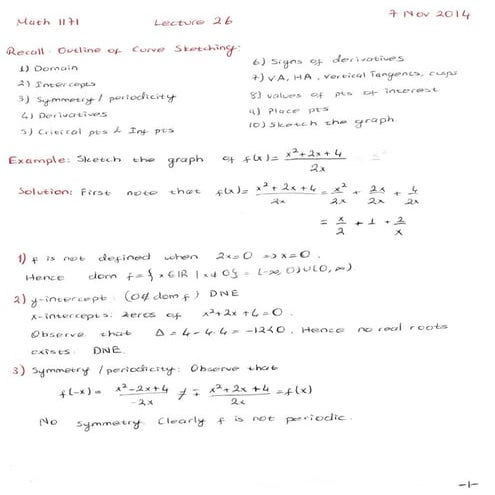 Math 1171 Lecture 26 7 Nov 2014
Recall: Outline of Curve Sketching:
1) Domain
2) Intercepts
3) Symmetry / periodicity
4) Derivatives
5) Critical pts & Inf pts
6) Signs of derivatives
7) VA, HA, Vertical Tangents, cusps
8) values of pts of interest
9) Place pts
10) Sketch the graph
Example: Sketch the graph of f(x) = (x²+2x+4)/2x
Solution: First note that f(x) = (x²+2x+4)/2x = x²/2x + 2x/2x + 4/2x
= x/2 + 1 + 2/x
1) f is not defined when 2x=0 ⇒ x=0.
Hence dom f = {x∈IR | x≠0} = (-∞,0)U(0,∞)
2) y-intercept: (0∉dom f) DNE
x-intercepts: zeros of x²+2x+4=0.
Observe that Δ = 4-4.4 = -12<0. Hence no real roots
exists. DNE.
3) Symmetry / periodicity: Observe that
f(-x) = (x²-2x+4)/-2x ≠ ∓ (x²+2x+4)/2x = f(x)
No symmetry. Clearly f is not periodic.
-1-